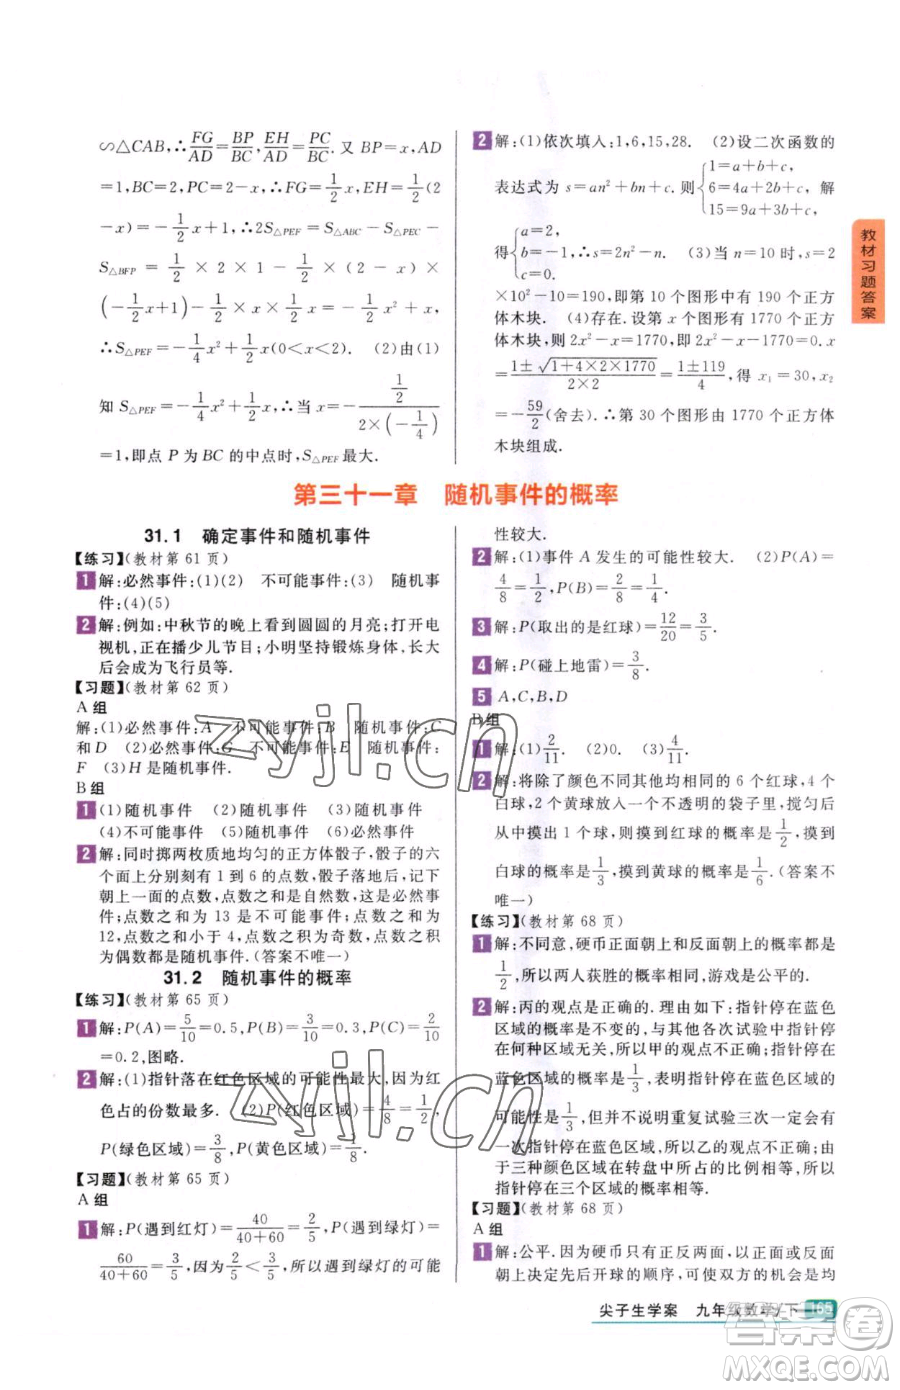 ∽△CAB,∴FG/AD=BP/BC,EH/AD=PC/BC.又 BP=x,AD
=1,BC=2,PC=2-x,∴FG=1/2x,EH=1/2(2
-x)=-1/2x+1,∴2S△PEF=S△ABC-S△PEC-
S△BFP=1/2×2×1-1/2×(2-x)×
(-1/2x+1)-1/2×x×1/2x=-1/2x²+x,
∴S△PEF=-1/4x²+1/2x(0<x<2). (2)由(1)
知 S△PEF=-1/4x²+1/2x,∴当 x=-(1/2)/(2×(-1/4))
=1,即点 P 为 BC 的中点时,S△PEF最大.
2 解:(1)依次填入:1,6,15,28. (2)设二次函数的
表达式为 s=an²+bn+c.则{1=a+b+c, 6=4a+2b+c, 15=9a+3b+c, 解
得{a=2, b=-1, c=0. ∴s=2n²-n. (3)当 n=10 时,s=2
×10²-10=190,即第 10 个图形中有 190 个正方
体木块. (4)存在.设第 x 个图形有 1770 个正方
体木块,则 2x²-x=1770,即 2x²-x-1770=0.x=
(1±√(1+4×2×1770))/(2×2)=(1±119)/4,得 x₁=30,x₂
=-59/2(舍去).∴第 30 个图形由 1770 个正方体
木块组成.
教材习题答案
第三十一章 随机事件的概率
31.1 确定事件和随机事件
【练习】(教材第 61 页)
1 解:必然事件:(1)(2) 不可能事件:(3) 随机事
件:(4)(5)
2 解:例如:中秋节的晚上看到圆圆的月亮;打开电
视机,正在播少儿节目;小明坚持锻炼身体,长大
后会成为飞行员等.
【习题】(教材第 62 页)
A 组
解:(1)必然事件:A 不可能事件:B 随机事件:C
和 D (2)必然事件:G 不可能事件:E 随机事件:
F (3)H 是随机事件.
B 组
1 (1)随机事件 (2)随机事件 (3)随机事件
(4)不可能事件 (5)随机事件 (6)必然事件
2 解:同时掷两枚质地均匀的正方体骰子,骰子的六
个面上分别刻有 1 到 6 的点数,骰子落地后,记下
朝上一面的点数,点数之和是自然数,这是必然事
件;点数之和为 13 是不可能事件;点数之和为
12,点数之和小于 4,点数之积为奇数,点数之积
为偶数都是随机事件.(答案不唯一)
31.2 随机事件的概率
【练习】(教材第 65 页)
1 解:P(A)=5/10=0.5,P(B)=3/10=0.3,P(C)=2/10
=0.2,图略.
2 解:(1)指针落在红色区域的可能性最大,因为红
色占的份数最多. (2)P(红色区域)=4/8=1/2,
P(绿色区域)=3/8,P(黄色区域)=1/8.
【习题】(教材第 65 页)
A 组
1 解:P(遇到红灯)=40/(40+60)=2/5,P(遇到绿灯)=
60/(40+60)=3/5,因为2/5<3/5,所以遇到绿灯的可能
性较大.
2 解:(1)事件 A 发生的可能性较大. (2)P(A)=
4/8=1/2,P(B)=2/8=1/4.
3 解:P(取出的是红球)=12/20=3/5.
4 解:P(碰上地雷)=3/8.
5 A,C,B,D
B 组
1 解:(1)2/11. (2)0. (3)4/11.
2 解:将除了颜色不同其他均相同的 6 个红球,4 个
白球,2 个黄球放入一个不透明的袋子里,搅匀后
从中摸出 1 个球,则摸到红球的概率是1/2,摸到
白球的概率是1/3,摸到黄球的概率是1/6.(答案不
唯一)
【练习】(教材第 68 页)
1 解:不同意,硬币正面朝上和反面朝上的概率都是
1/2,所以两人获胜的概率相同,游戏是公平的.
2 解:丙的观点是正确的.理由如下:指针停在蓝色
区域的概率是不变的,与其各次试验中指针停
在何种区域无关,所以甲的观点不正确;指针停在
蓝色区域的概率是1/3,表明指针停在蓝色区域的
可能性是1/3,但并不说明重复试验三次一定会有
一次指针停在蓝色区域,所以乙的观点不正确;由
于三种颜色区域在转盘中所占的比例相等,所以
指针停在三个区域的概率相等.
【习题】(教材第 68 页)
A 组
1 解:公平.因为硬币只有正反两面,以硬币哪面朝
上来决定先后开球的顺序,可使双方的机会是均
尖子生学案 九年级数学/下 165
zyjl.cn
zyjl.cn
答案圈
MXQE.COM